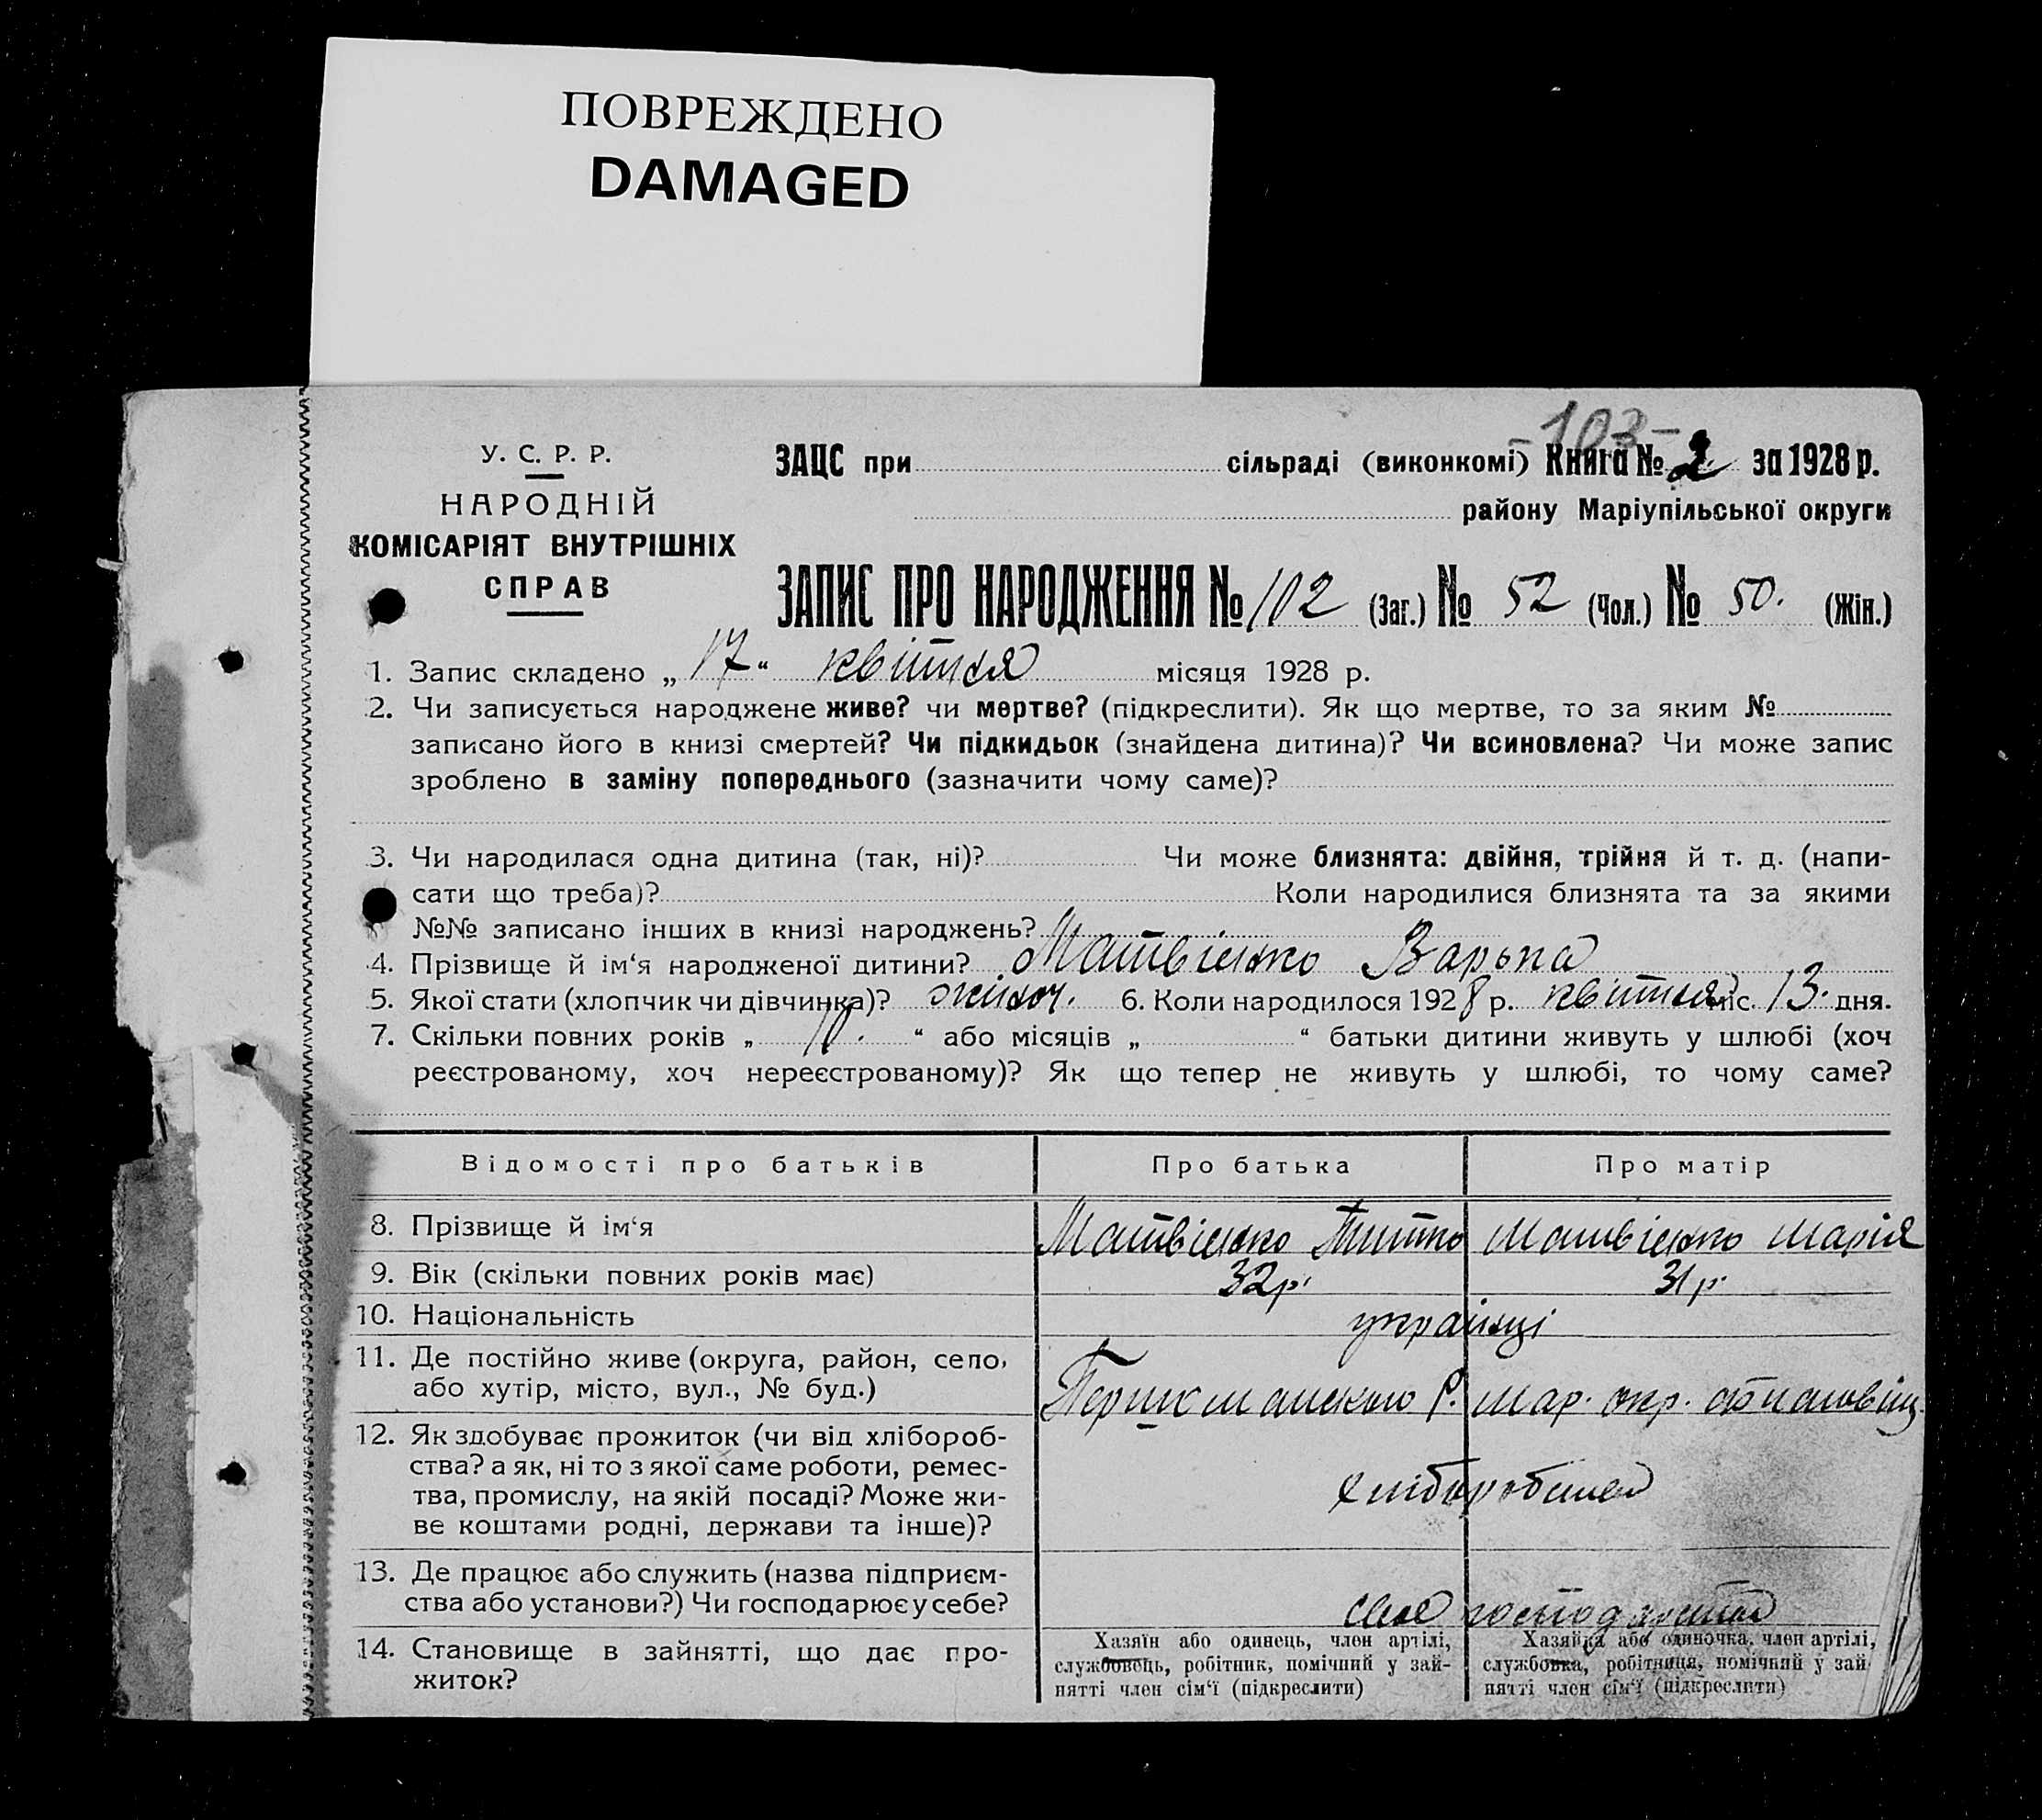 ПОВРЕЖДЕНО
DAMAGED
- 103 -
У. С. Р. Р.
НАРОДНІЙ
КОМІСАРІЯТ ВНУТРІШНІХ
СПРАВ
ЗАЦС при сільраді (виконкомі) Книга № 2 за 1928 р.
району Маріупільської округи
ЗАПИС ПРО НАРОДЖЕННЯ № 102 (Заг.) № 52 (Чол.) № 50. (Жін.)
1. Запис складено „ 17 “ квітня місяця 1928 р.
2. Чи записується народжене живе? чи мертве? (підкреслити). Як що мертве, то за яким №
записано його в книзі смертей? Чи підкидьок (знайдена дитина)? Чи всиновлена? Чи може запис
зроблено в заміну попереднього (зазначити чому саме)?
3. Чи народилася одна дитина (так, ні)? Чи може близнята: двійня, трійня й т. д. (напи-
сати що треба)? Коли народилися близнята та за якими
№№ записано інших в книзі народжень?
4. Прізвище й ім‘я народженої дитини? Матвієнко Варька
5. Якої стати (хлопчик чи дівчинка)? жіноч. 6. Коли народилося 1928 р. квітня міс. 13. дня.
7. Скільки повних років „ 10. “ або місяців „ “ батьки дитини живуть у шлюбі (хоч
реєстрованому, хоч нереєстрованому)? Як що тепер не живуть у шлюбі, то чому саме?
Відомості про батьків Про батька Про матір
8. Прізвище й ім‘я Матвієнко Матвієнко Марія
9. Вік (скільки повних років має) 32 р. 31 р.
10. Національність українці
11. Де постійно живе (округа, район, село,
або хутір, місто, вул., № буд.) Р. Мар. окр.
12. Як здобуває прожиток (чи від хлібороб-
ства? а як, ні то з якої саме роботи, ремес-
тва, промислу, на якій посаді? Може жи-
ве коштами родні, держави та інше)?
13. Де працює або служить (назва підприєм-
ства або установи?) Чи господарює у себе?
14. Становище в зайнятті, що дає про-
житок?
Хазяїн або одинець, член артілі,
службовець, робітник, помічний у зай-
нятті член сім‘ї (підкреслити)
Хазяйка або одиночка, член артілі,
службовка, робітниця, помічний у зай-
нятті член сім‘ї (підкреслити)